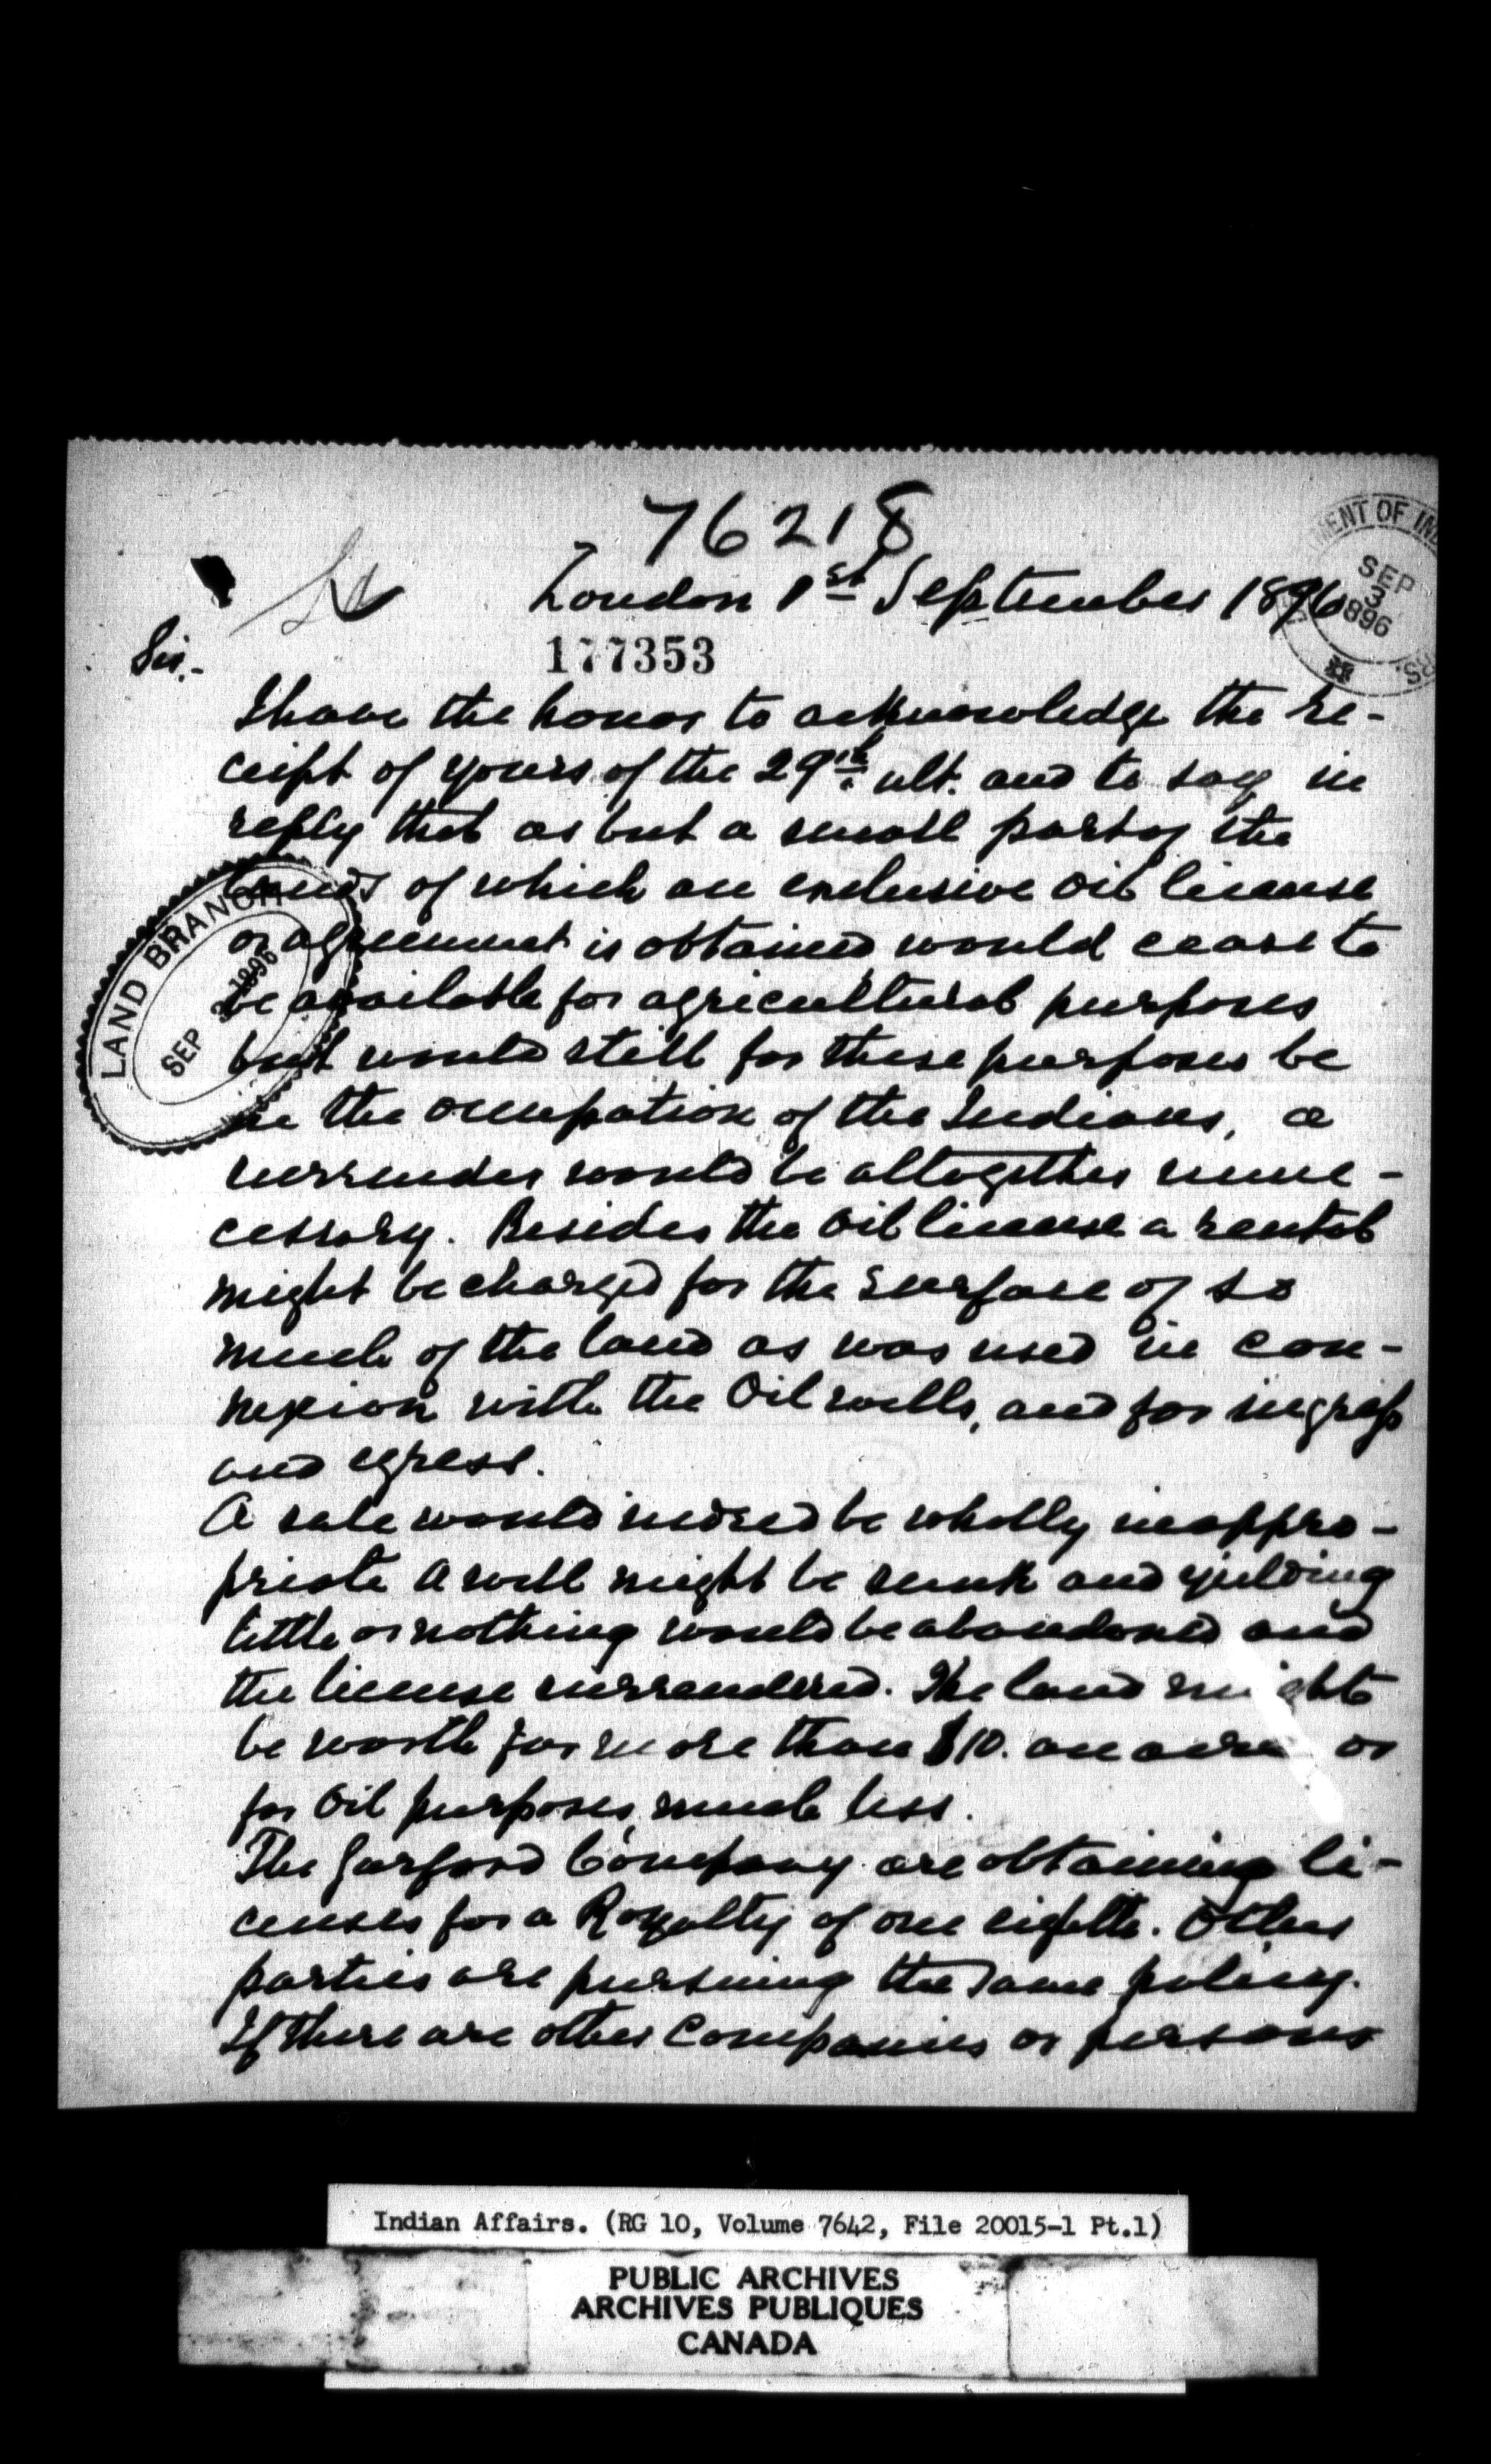 76218
London 1st September 1896
177353
DEPARTMENT OF INDIAN AFFAIRS.
SEP
3
1896
Sir,-
I have the honor to acknowledge the re-
ceipt of yours of the 29th ult. and to say in
reply that as but a small part of the
lands of which an exclusive oil license
or agreement is obtained would cease to
be available for agricultural purposes
but would still for these purposes be
in the occupation of the Indians, a
surrender would be altogether unne-
cessary. Besides the oil license a rental
might be charged for the surface of so
much of the land as was used in con-
nexion with the Oil wells, and for ingress
and egress.
A sale would indeed be wholly inappro-
priate A well might be sunk and yielding
little or nothing would be abandoned and
the license surrendered. The land might
be worth far more than $10. an acre or
for oil purposes, much less.
The Company are obtaining li-
censes for a Royalty of one eighth. Other
parties are pursuing the same policy.
If there are other Companies or persons
LAND BRANCH
SEP 3 1896
Indian Affairs. (RG 10, Volume 7642, File 20015-1 Pt.1)
PUBLIC ARCHIVES
ARCHIVES PUBLIQUES
CANADA